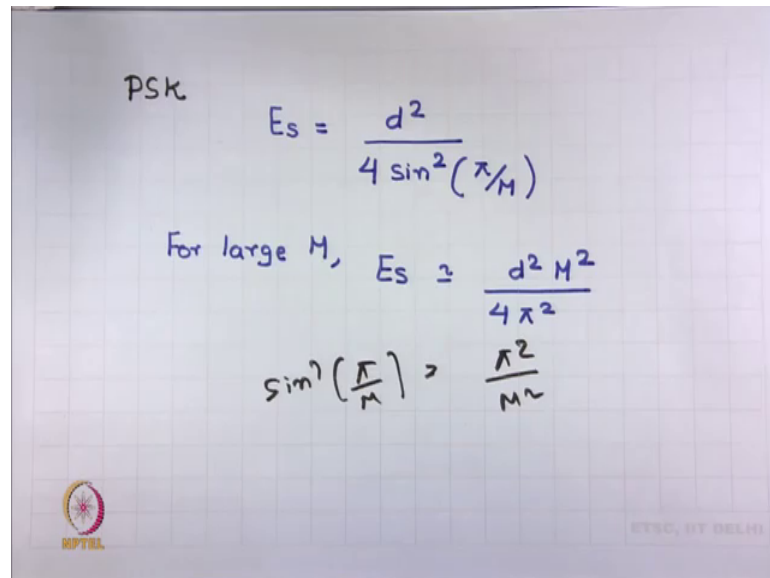 PSK
Es = d² / 4 sin² (π/M)
For large M, Es ≃ d² M² / 4 π²
sin² (π/M) = π² / M²
NPTEL
ETSC, IIT DELHI